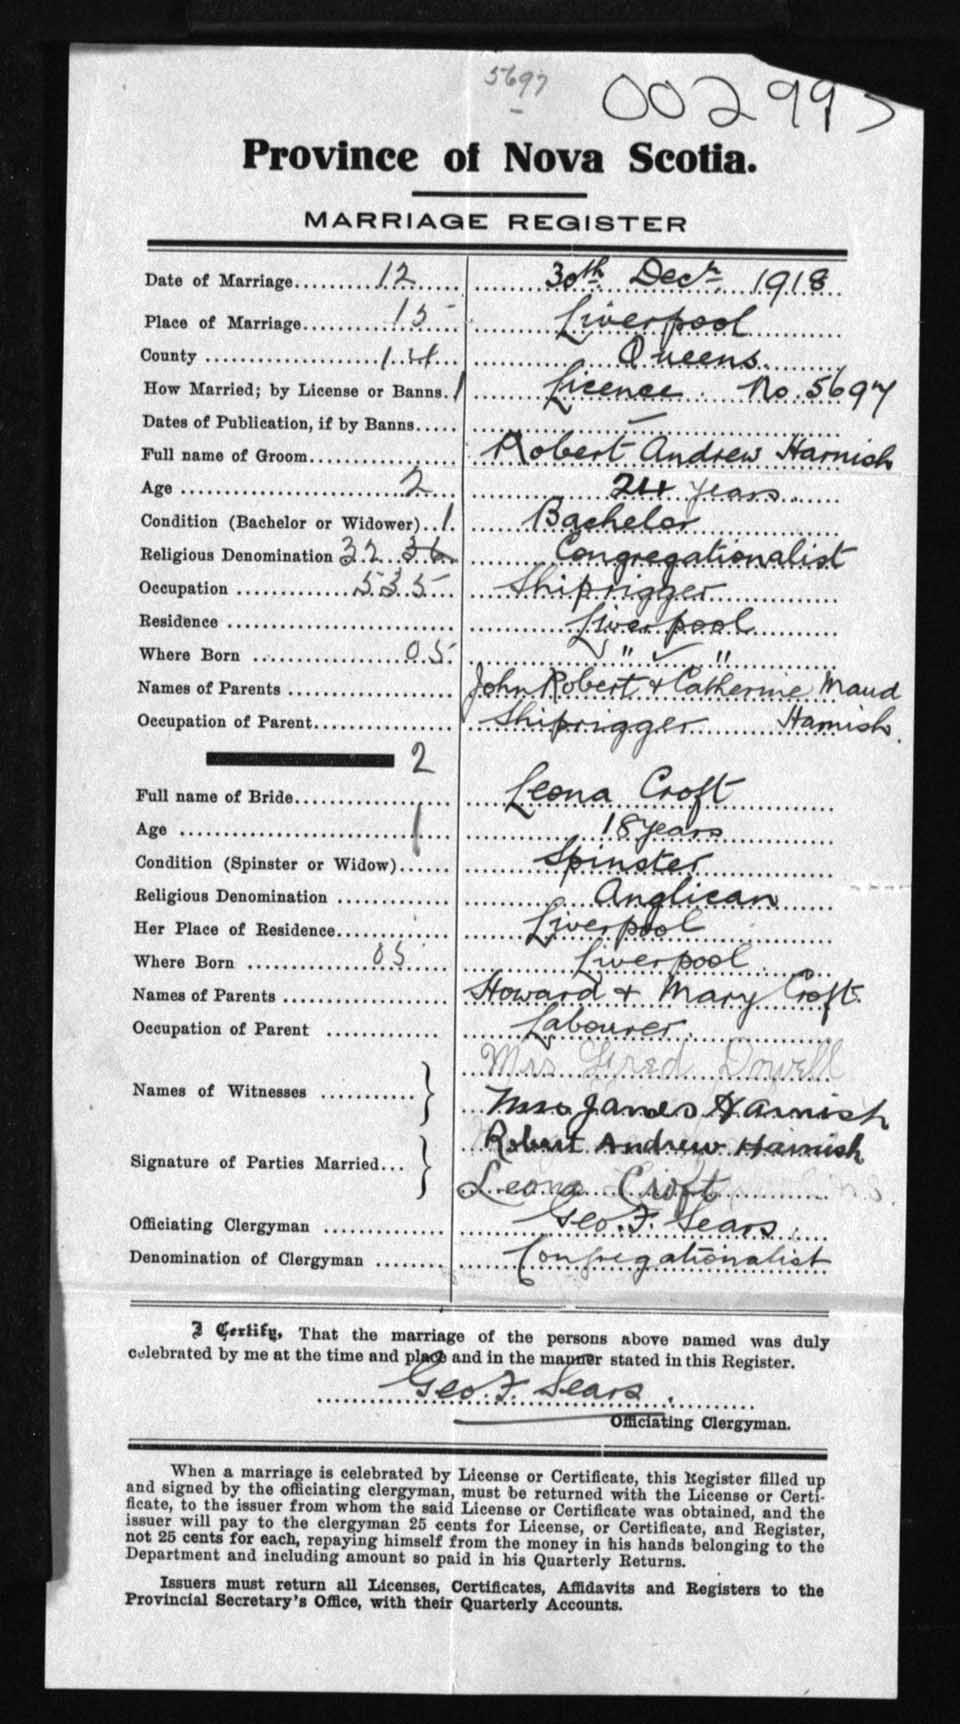 5697
002993
Province of Nova Scotia.
MARRIAGE REGISTER
Date of Marriage 12 30th Decr. 1918
Place of Marriage 15 Liverpool
County 14 Queens
How Married; by License or Banns. 1 Licence No. 5697
Dates of Publication, if by Banns —
Full name of Groom Robert Andrew Harnish
Age 2 24 years
Condition (Bachelor or Widower) 1 Bachelor
Religious Denomination 32 36 Congregationalist
Occupation 535 Shiprigger
Residence Liverpool
Where Born 05 " "
Names of Parents John Robert & Catherine Maud
Occupation of Parent Shiprigger Harnish.
2
Full name of Bride Leona Croft
Age 1 18 years
Condition (Spinster or Widow) Spinster
Religious Denomination Anglican
Her Place of Residence Liverpool
Where Born 05 Liverpool
Names of Parents Howard & Mary Croft
Occupation of Parent Labourer.
Mrs Fred Dowell
Names of Witnesses
Mrs James Harnish
Robert Andrew Harnish
Signature of Parties Married
Leona Croft
Officiating Clergyman Geo. F. Sears
Denomination of Clergyman Congregationalist
I Certify, That the marriage of the persons above named was duly
celebrated by me at the time and place and in the manner stated in this Register.
Geo. F. Sears.
Officiating Clergyman.
When a marriage is celebrated by License or Certificate, this Register filled up
and signed by the officiating clergyman, must be returned with the License or Certi-
ficate, to the issuer from whom the said License or Certificate was obtained, and the
issuer will pay to the clergyman 25 cents for License, or Certificate, and Register,
not 25 cents for each, repaying himself from the money in his hands belonging to the
Department and including amount so paid in his Quarterly Returns.
Issuers must return all Licenses, Certificates, Affidavits and Registers to the
Provincial Secretary's Office, with their Quarterly Accounts.